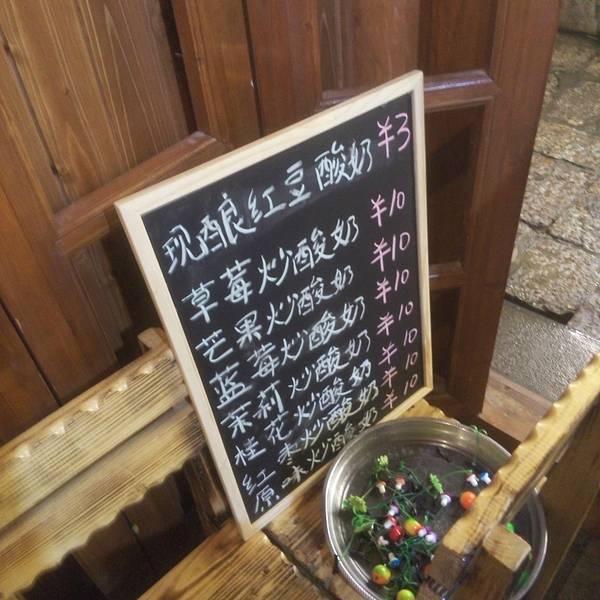 现酿红豆酸奶 ¥3
草莓炒酸奶 ¥10
芒果炒酸奶 ¥10
蓝莓炒酸奶 ¥10
茉莉炒酸奶 ¥10
桂花炒酸奶 ¥10
红枣炒酸奶 ¥10
原味炒酸奶 ¥10